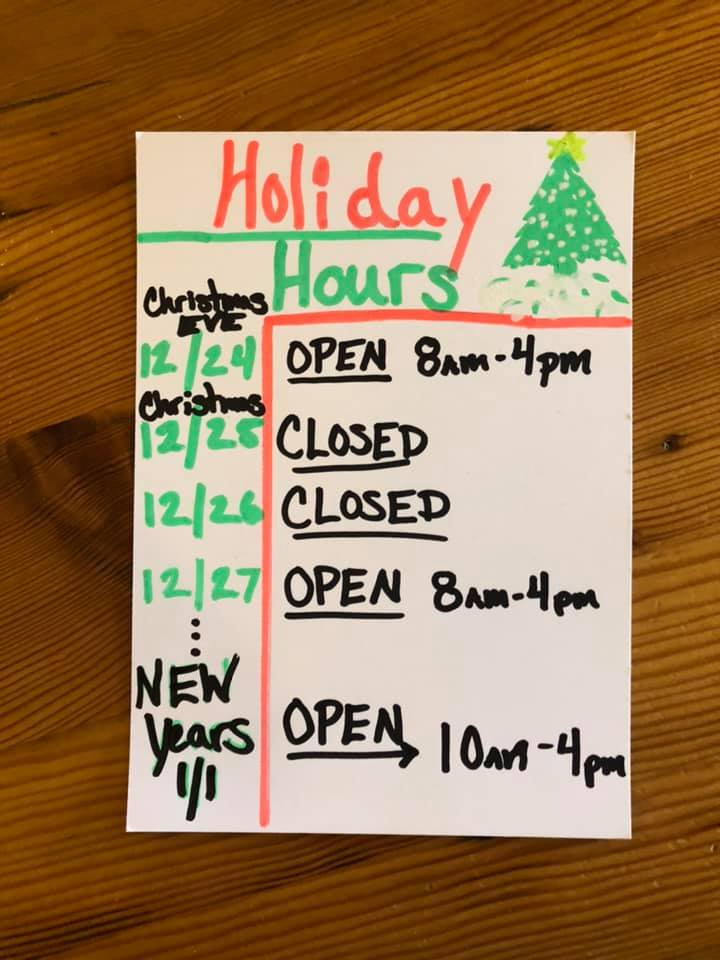 Holiday
Hours
Christmas
EVE
12/24 OPEN 8am-4pm
Christmas
12/25 CLOSED
12/26 CLOSED
12/27 OPEN 8am-4pm
⋮
NEW
Years
1/1 OPEN → 10am-4pm